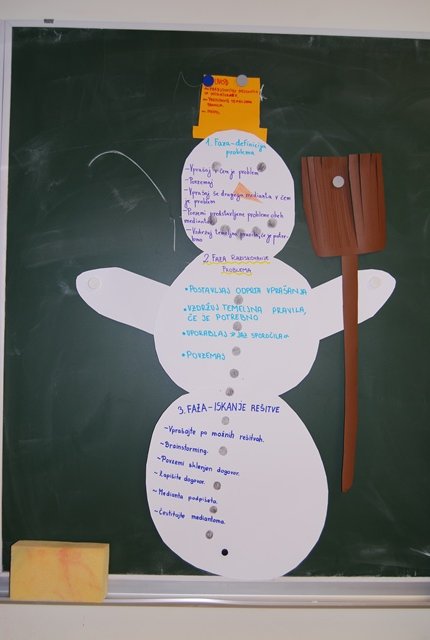 UVOD
1. Faza-definicija
problema
-Vprašaj v čem je problem
-Povzemaj
-Vprašaj še drugega medianta v čem
je problem
-Povzemi predstavljene probleme obeh
mediantov
-Vzdržuj temeljna pravila, če je potre-
bno
2. FAZA RAZISKOVANJE
PROBLEMA
*POSTAVLJAJ ODPRTA VPRAŠANJA
*VZDRŽUJ TEMELJNA PRAVILA,
ČE JE POTREBNO
*UPORABLJAJ »JAZ SPOROČILA«
*POVZEMAJ
3. FAZA-ISKANJE REŠITVE
~Vprašajte po možnih rešitvah.
~Brainstorming.
~Povzemi sklenjen dogovor.
~Zapišite dogovor.
~Medianta podpišeta.
~Čestitajte mediantoma.